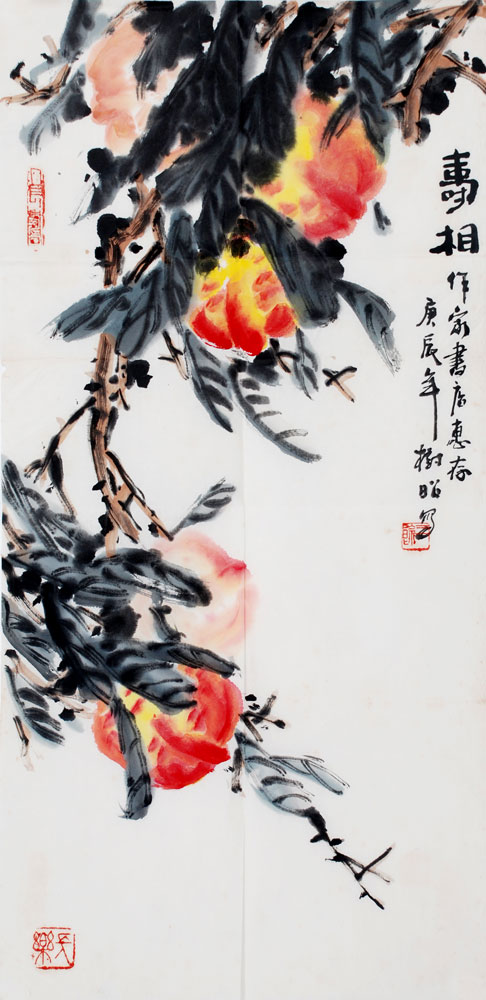 壽相
作家書店惠存
庚辰年樹昭写
長樂